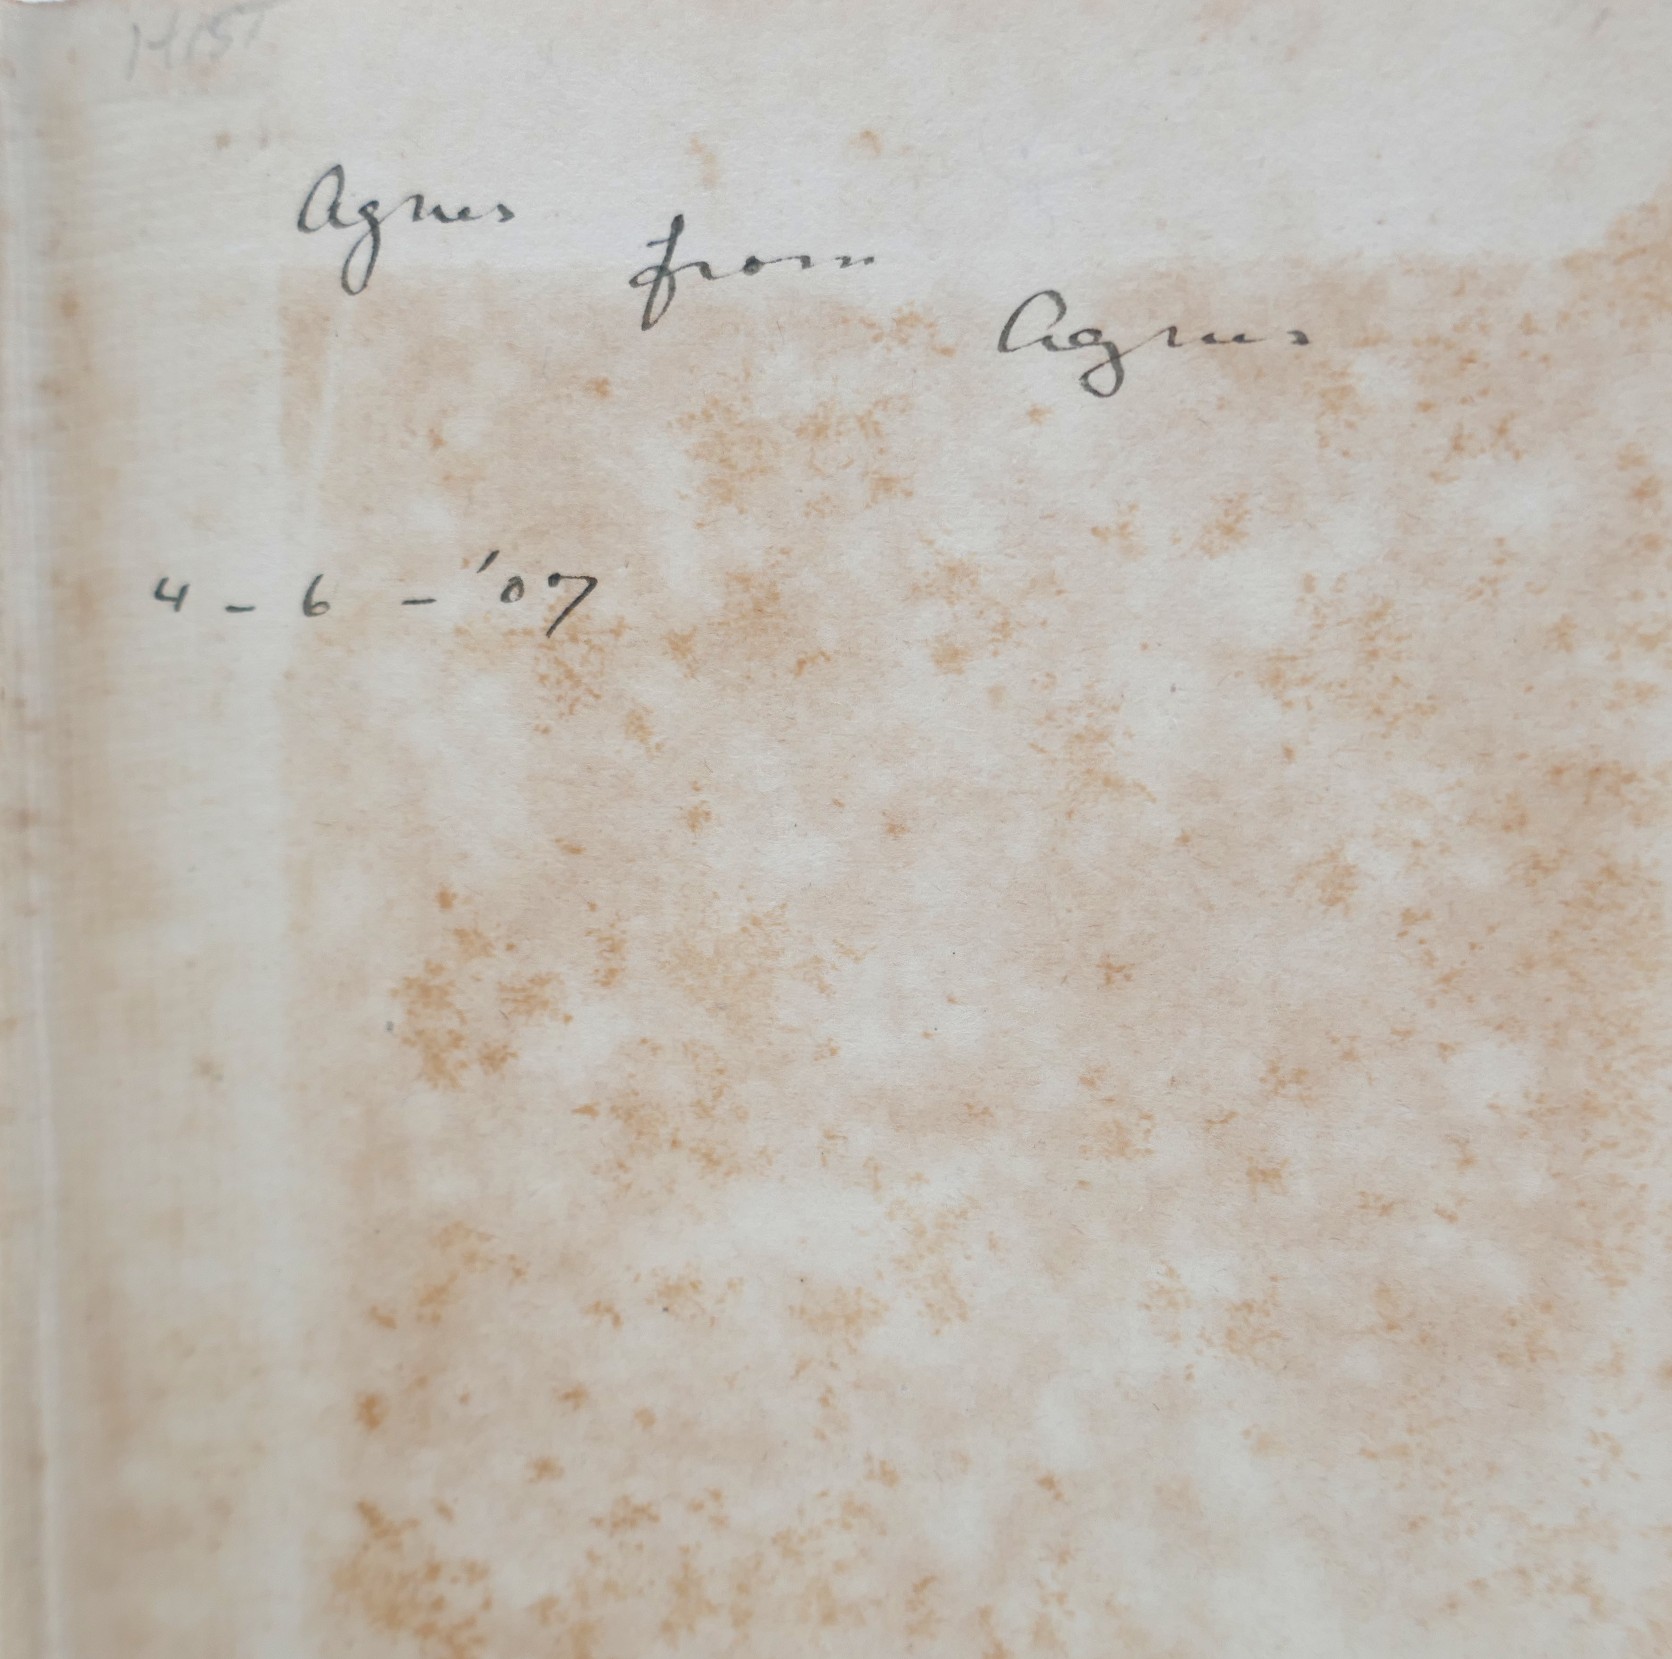 HIST
Agnes
from
Agnes
4 - 6 - '07